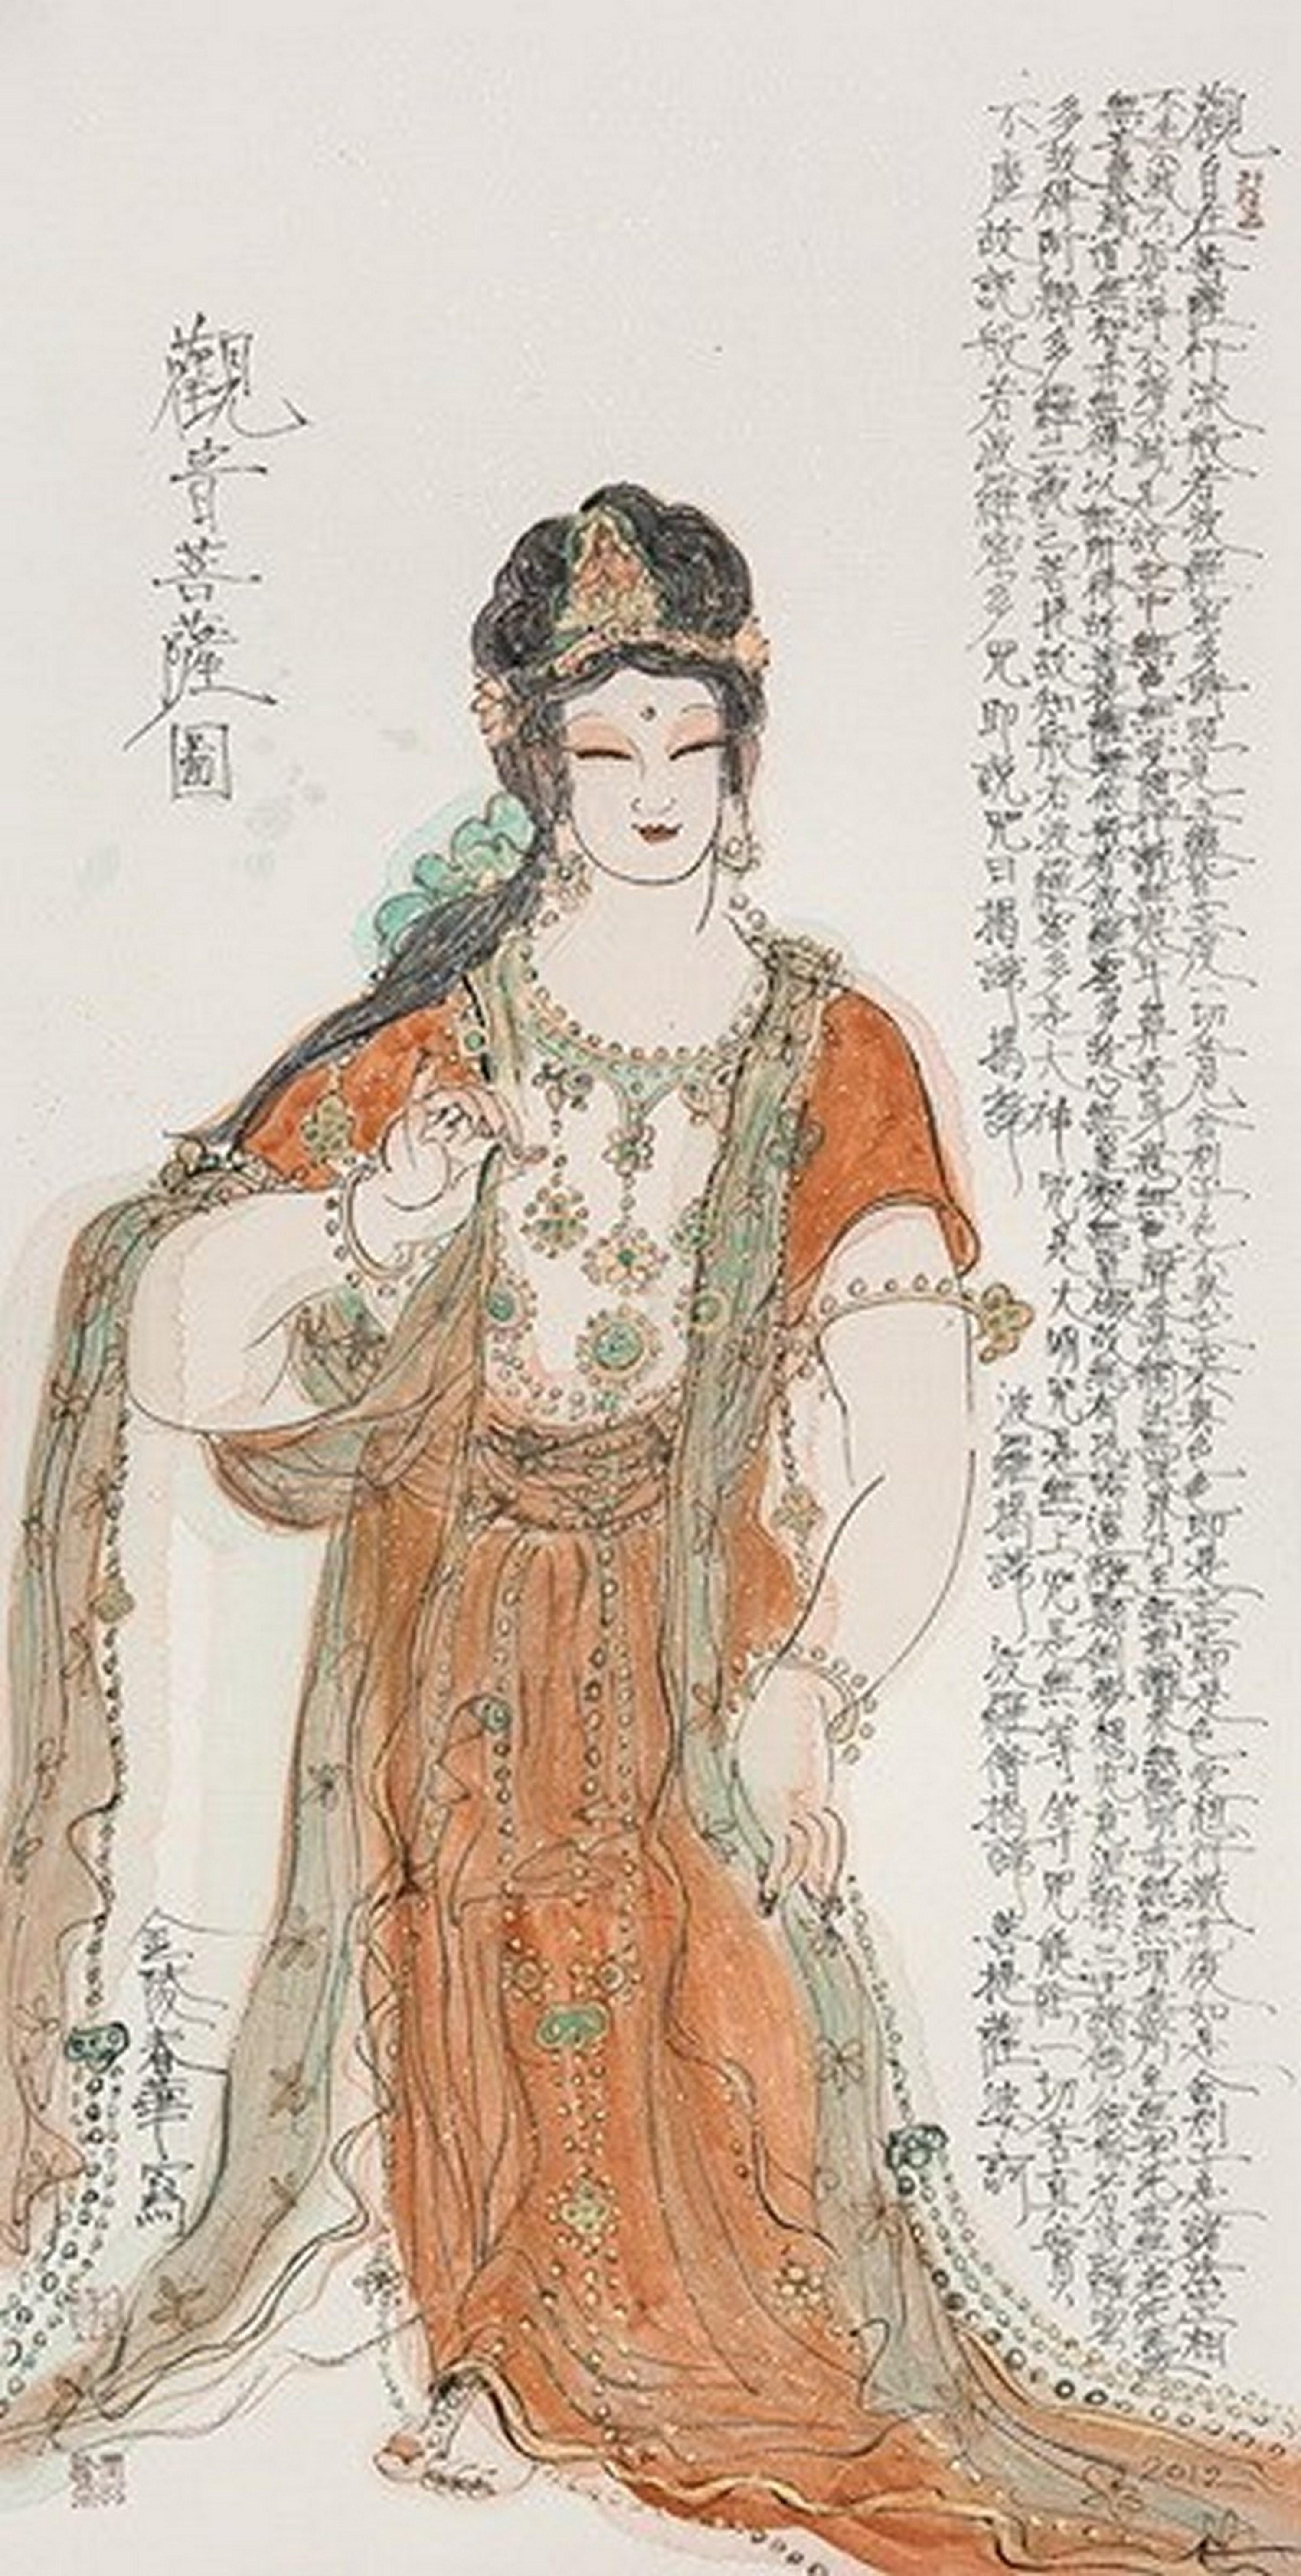 觀自在菩薩行深般若波羅蜜多時照見五蘊皆空度一切苦厄舍利子色不異空空不異色色即是空空即是色受想行識亦復如是舍利子是諸法空相
不生不滅不垢不淨不增不減是故空中無色無受想行識無眼耳鼻舌身意無色聲香味觸法無眼界乃至無意識界無無明亦無無明盡乃至無老死亦無老死盡
無苦集滅道無智亦無得以無所得故菩提薩埵依般若波羅蜜多故心無罣礙無罣礙故無有恐怖遠離顛倒夢想究竟涅槃三世諸佛依般若波羅蜜
多故得阿耨多羅三藐三菩提故知般若波羅蜜多是大神咒是大明咒是無上咒是無等等咒能除一切苦真實
不虛故說般若波羅蜜多咒即說咒曰揭諦揭諦 波羅揭諦 波羅僧揭諦 菩提薩婆訶
觀音菩薩圖
金陵春華寫
2012